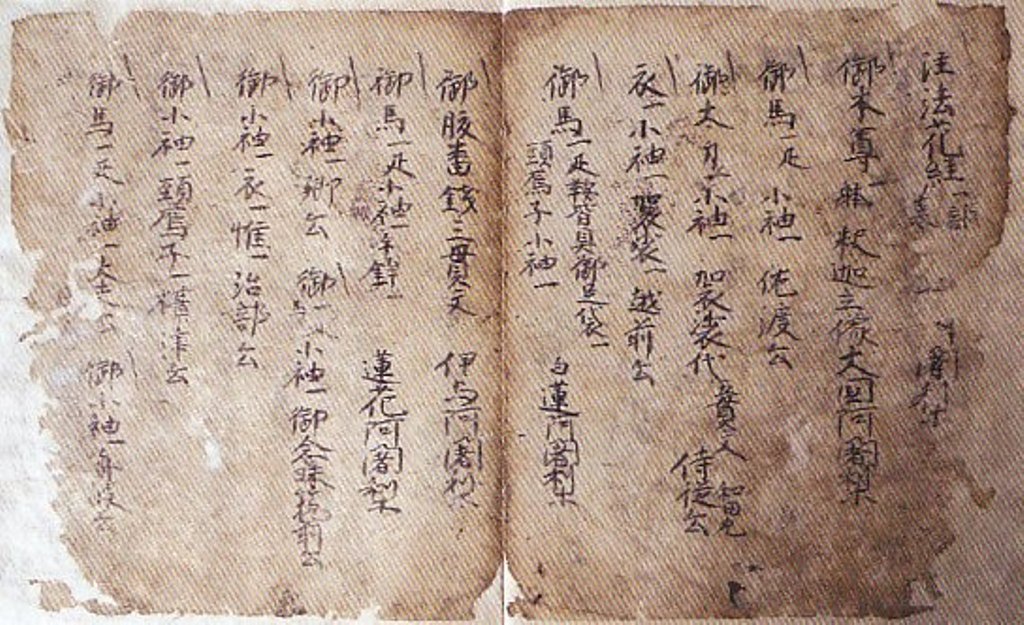 注法花経一部十巻 弁阿闍梨
御本尊一躰釈迦立像 大国阿闍梨
御馬一疋 小袖一 佐渡公
御太刀一 小袖一 加衣裟代 壱貫文 侍従公
衣一 小袖一 袈裟一 越前公
御馬一疋 鞍皆具 御足袋一
頭馬子 小袖一 白蓮阿闍梨
御腹巻 銭三貫文 伊与阿闍梨
御馬一疋 小袖一 手鉾一 蓮花阿闍梨
御小袖一 卿公 御小袖一 御念珠 筑前公
御小袖一 衣一 帷一 治部公
御小袖一 頭馬子一 摂津公
御馬一疋 小袖一 大夫公 御小袖一